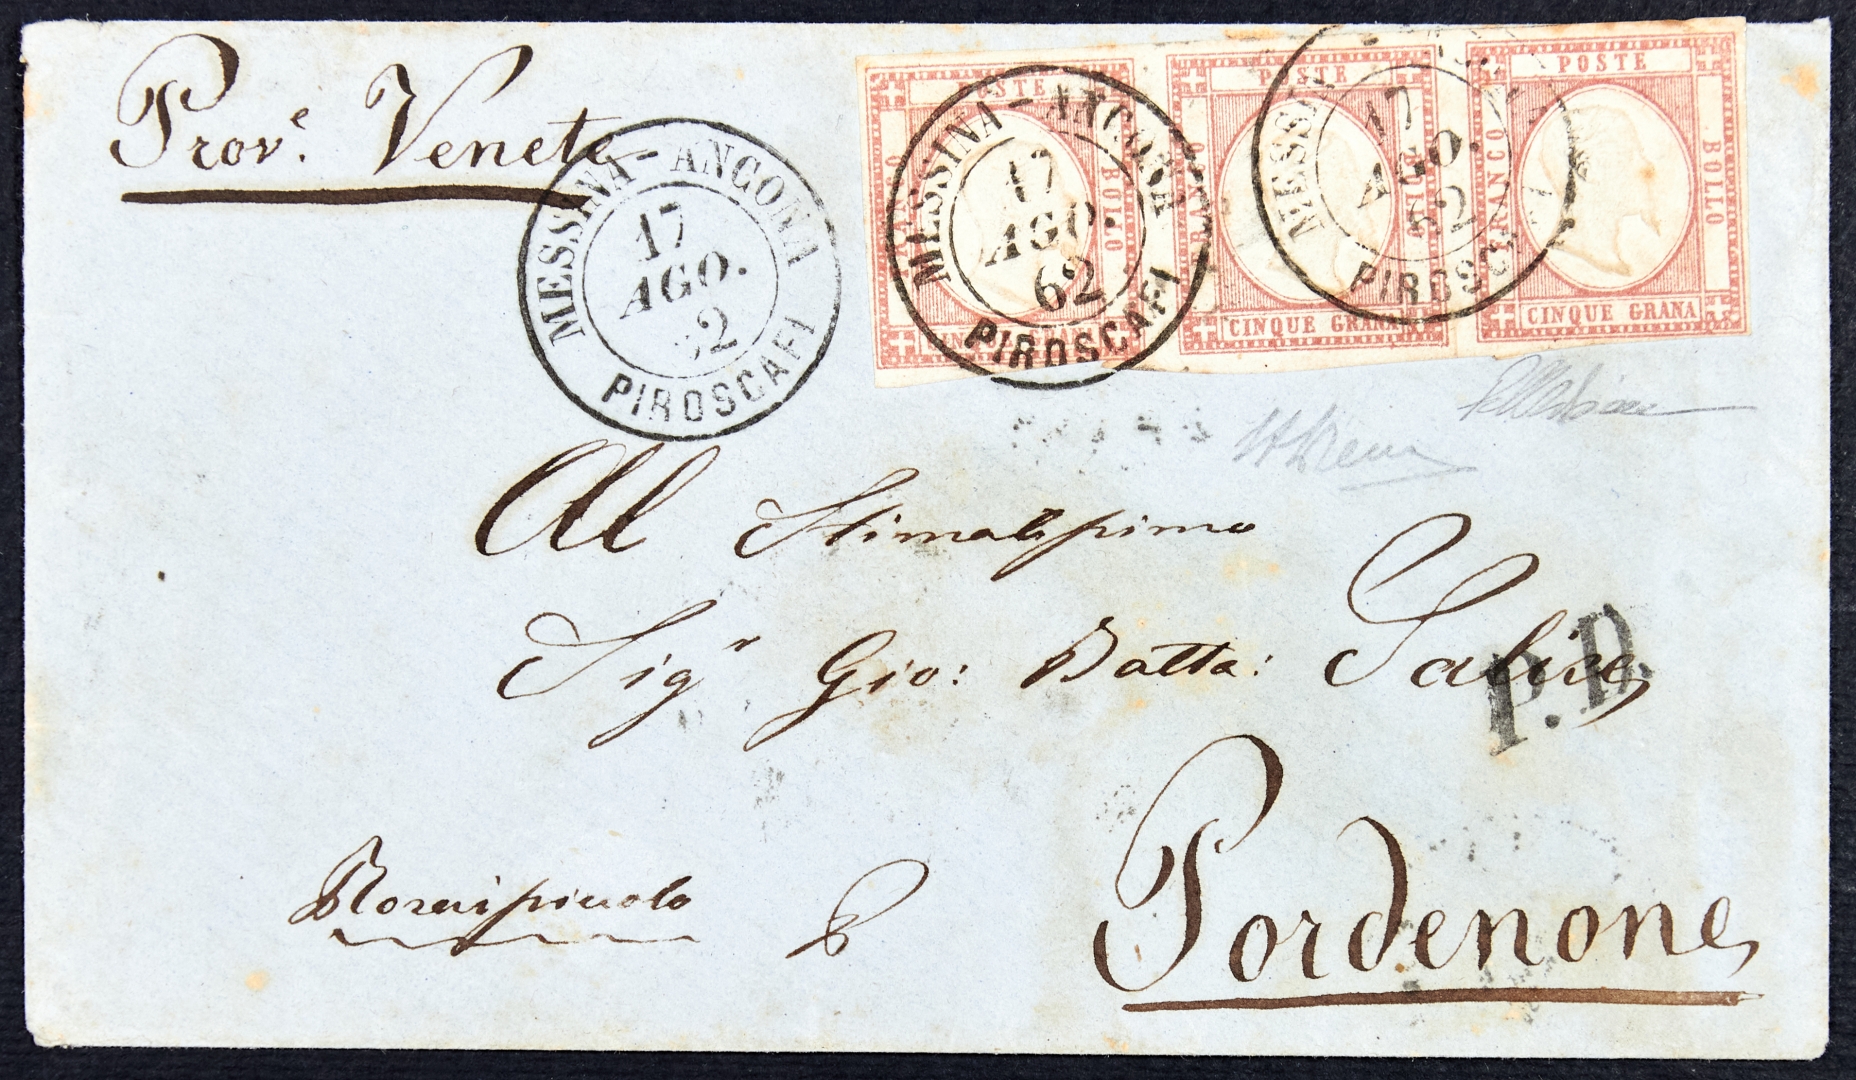 Prov.e Venete
MESSINA-ANCONA
17
AGO.
62
PIROSCAFI
POSTE
FRANCO
BOLLO
CINQUE GRANA
MESSINA-ANCONA
17
AGO.
62
PIROSCAFI
POSTE
CINQUE GRANA
MESSI
17
AGO.
62
PIROSC
POSTE
FRANCO
BOLLO
CINQUE GRANA
Al Stimatissimo
Sig.r Gio: Batta:
P.D.
Pordenone